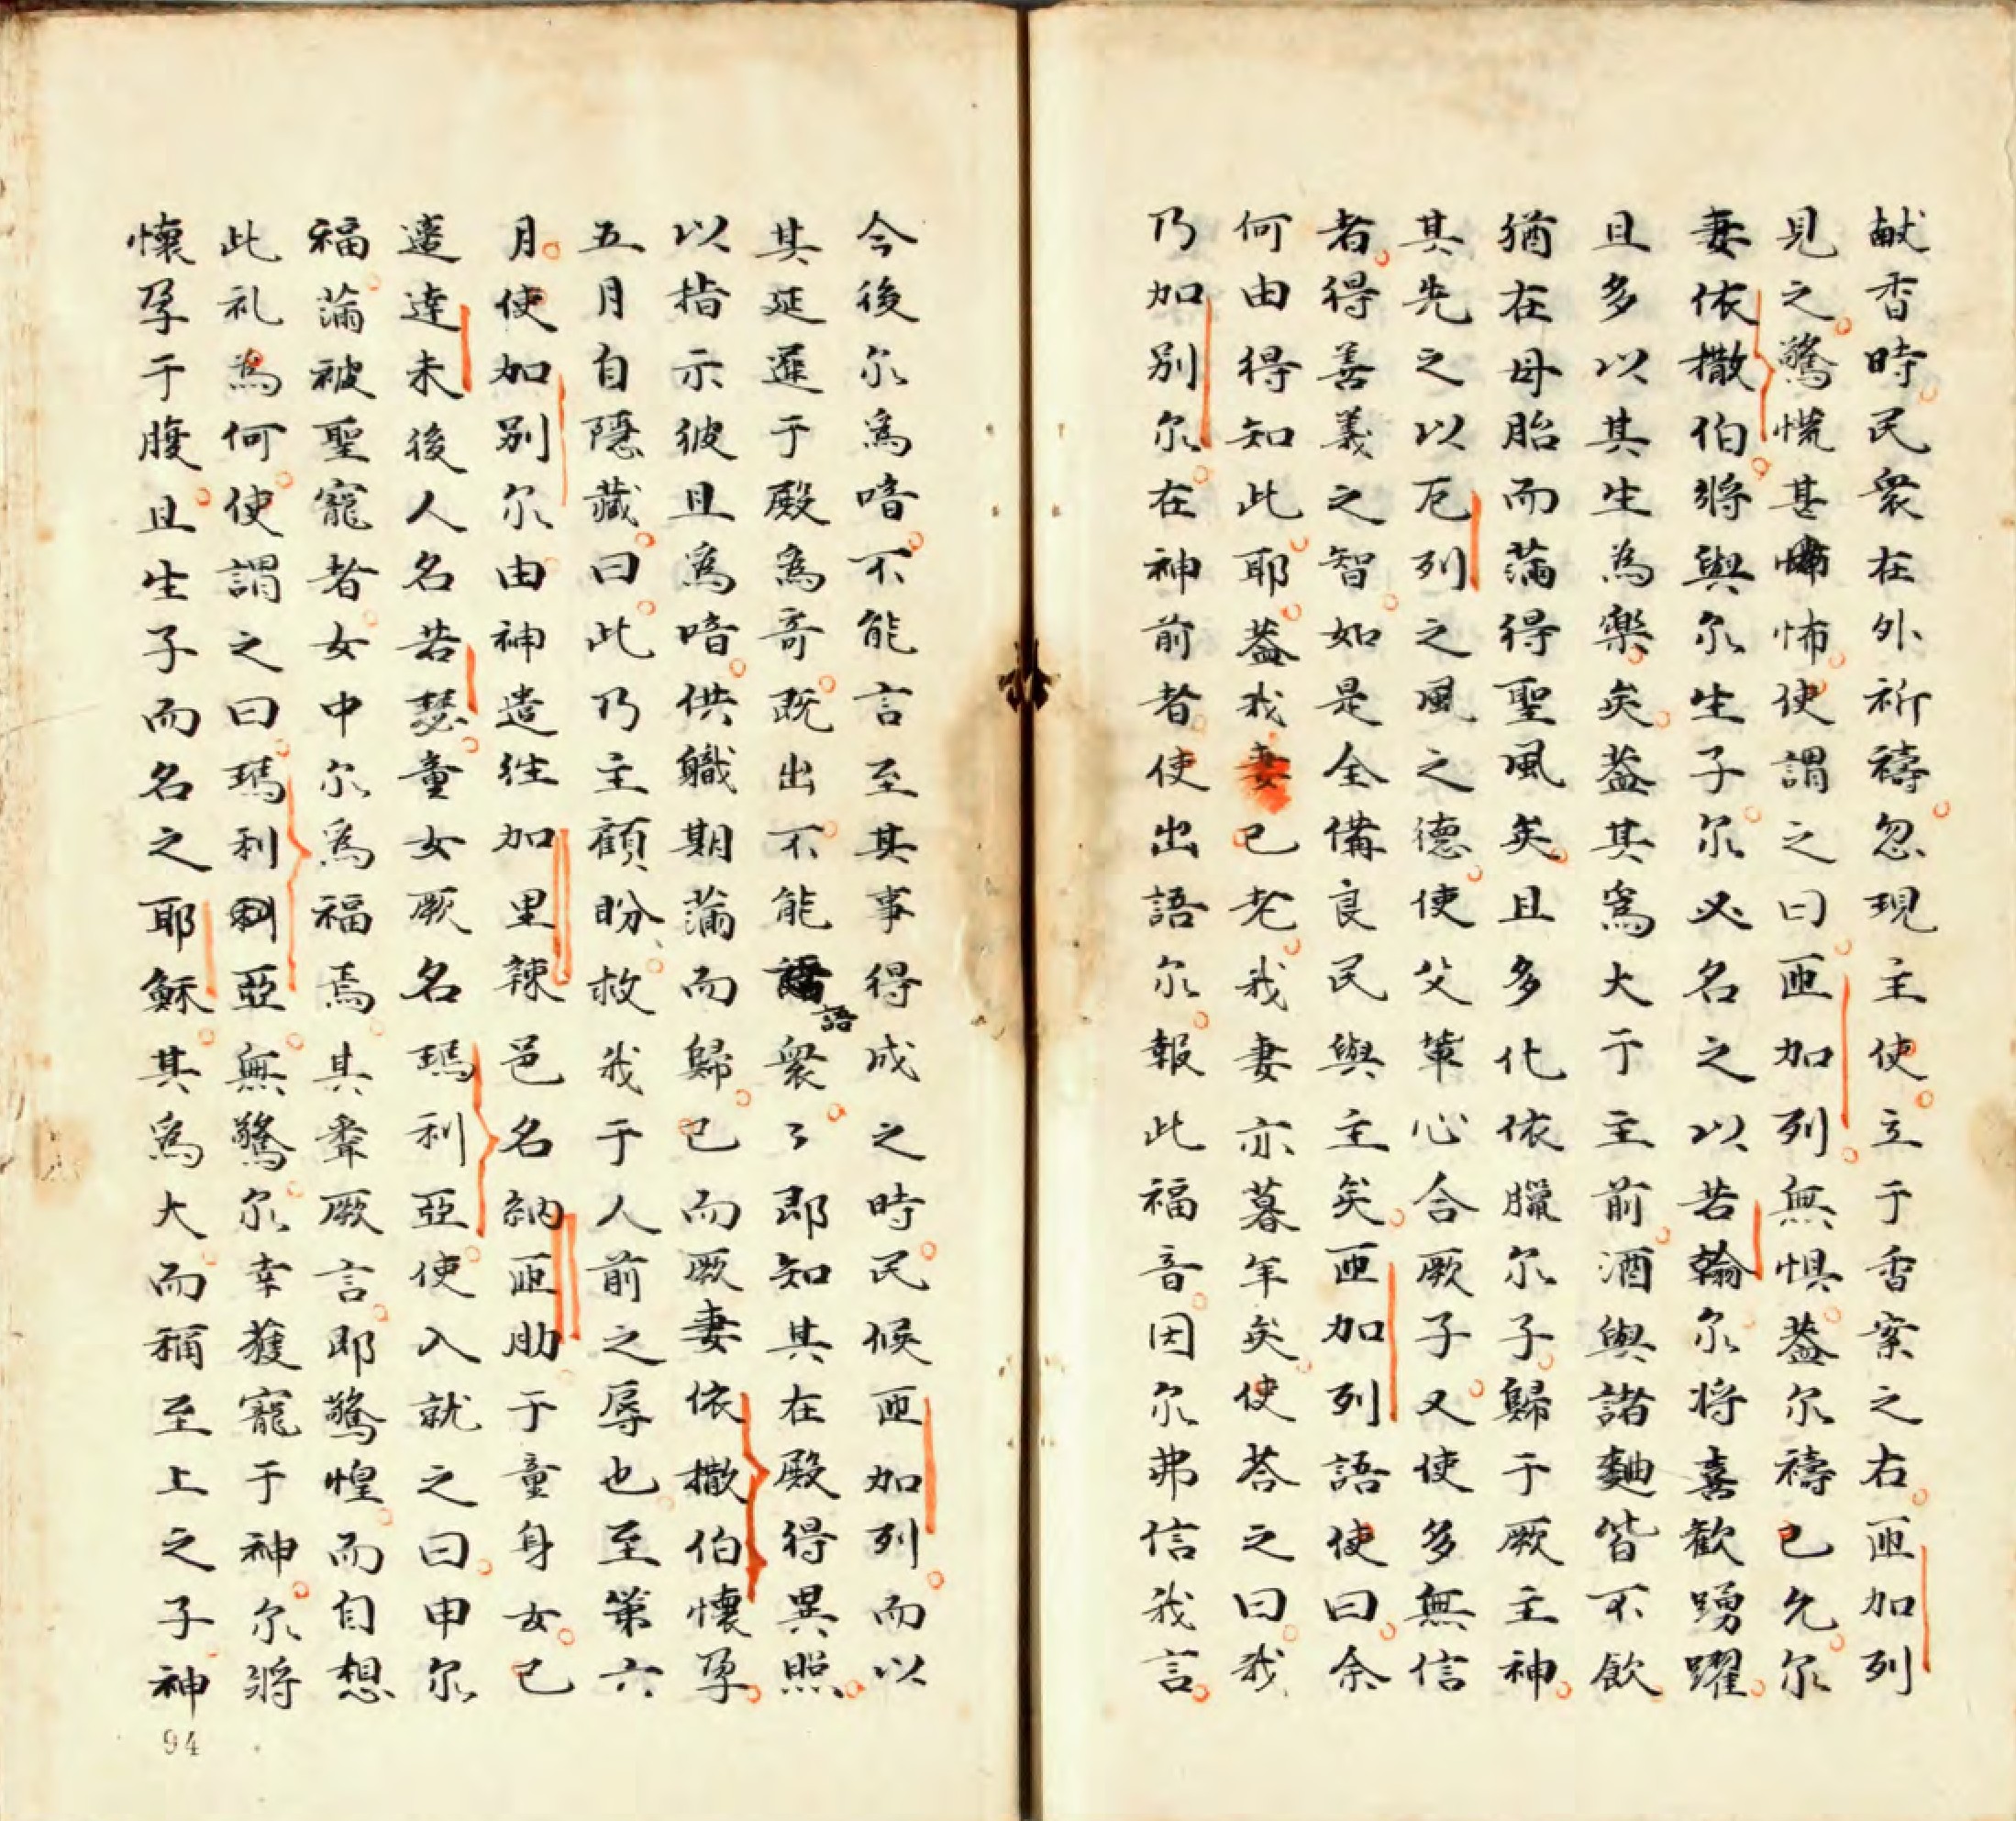 献香時民衆在外祈禱忽現主使立于香案之右匝加列
見之驚慌甚怖使謂之曰匝加列無惧蓋尔禱已允尔
妻依撒伯將與尔生子尔必名之以若翰尔将喜歡踴躍
且多以其生為樂矣蓋其爲大于主前酒與諸麯皆不飲
猶在母胎而滿得聖風矣且多化依臘尔子歸于厥主神
其先之以厄列之風之德使父輩心合厥子又使多無信
者得善義之智如是全備良民與主矣匝加列語使曰余
何由得知此耶蓋我妻已老我妻亦暮年矣使荅之曰我
乃加别尔在神前者使出語尔報此福音因尔弗信我言
今後尔爲喑不能言至其事得成之時民候匝加列而以
其延遲于殿爲竒既出不能語衆〻即知其在殿得異照
以指示彼且爲喑供職期滿而歸已而厥妻依撒伯懷孕
五月自隱藏曰此乃主顧盼救我于人前之辱也至第六
月使加别尔由神遣往加里辣邑名納匝肋于童身女已
遣達未後人名若瑟童女厥名瑪利亞使入就之曰申尔
福滿被聖寵者女中尔爲福焉其聿厥言即驚惶而自想
此礼為何使謂之曰瑪利亞無驚尔幸獲寵于神尔將
懷孕于腹且生子而名之耶穌其爲大而稱至上之子神
94